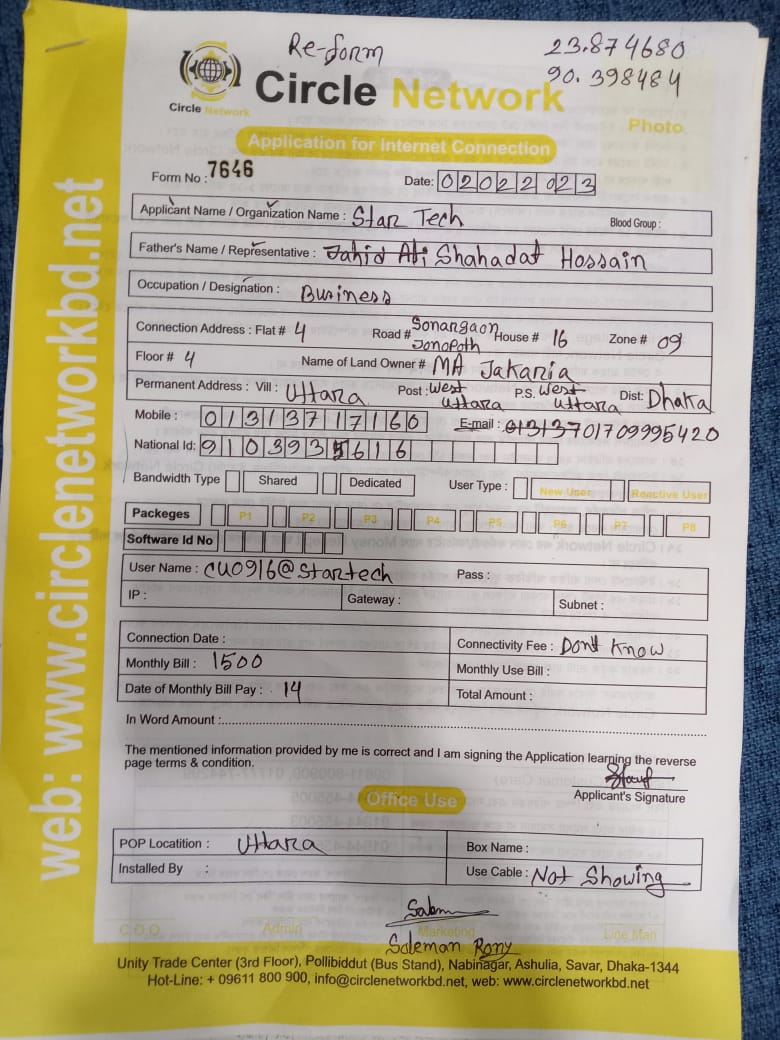 Re-form
23.874680
90.398484
Circle Network
Circle Network
Photo
Application for Internet Connection
Form No : 7646
Date: 02022023
Applicant Name / Organization Name : Star Tech
Blood Group :
Father's Name / Representative : Jahid Ali Shahadat Hossain
Occupation / Designation : Business
Connection Address : Flat # 4 Road # Sonargaon Jonopoth House # 16 Zone # 09
Floor # 4 Name of Land Owner # MA Jakaria
Permanent Address : Vill : Uttara Post : West Uttara P.S. West Uttara Dist: Dhaka
Mobile : 01313717160 E-mail : 01313701709995420
National Id: 9103935616
Bandwidth Type Shared Dedicated User Type : New User Reactive User
Packeges P1 P2 P3 P4 P5 P6 P7 P8
Software Id No
User Name : CU0916@Startech Pass :
IP : Gateway : Subnet :
Connection Date : Connectivity Fee : Dont Know
Monthly Bill : 1500 Monthly Use Bill :
Date of Monthly Bill Pay : 14 Total Amount :
In Word Amount :
The mentioned information provided by me is correct and I am signing the Application learning the reverse
page terms & condition.
Applicant's Signature
Office Use
POP Locatition : Uttara Box Name :
Installed By : Use Cable : Not Showing
Salem
C.O.O Admin Marketing Line Man
Soleman Rony
Unity Trade Center (3rd Floor), Pollibiddut (Bus Stand), Nabinagar, Ashulia, Savar, Dhaka-1344
Hot-Line: + 09611 800 900, info@circlenetworkbd.net, web: www.circlenetworkbd.net
web: www.circlenetworkbd.net